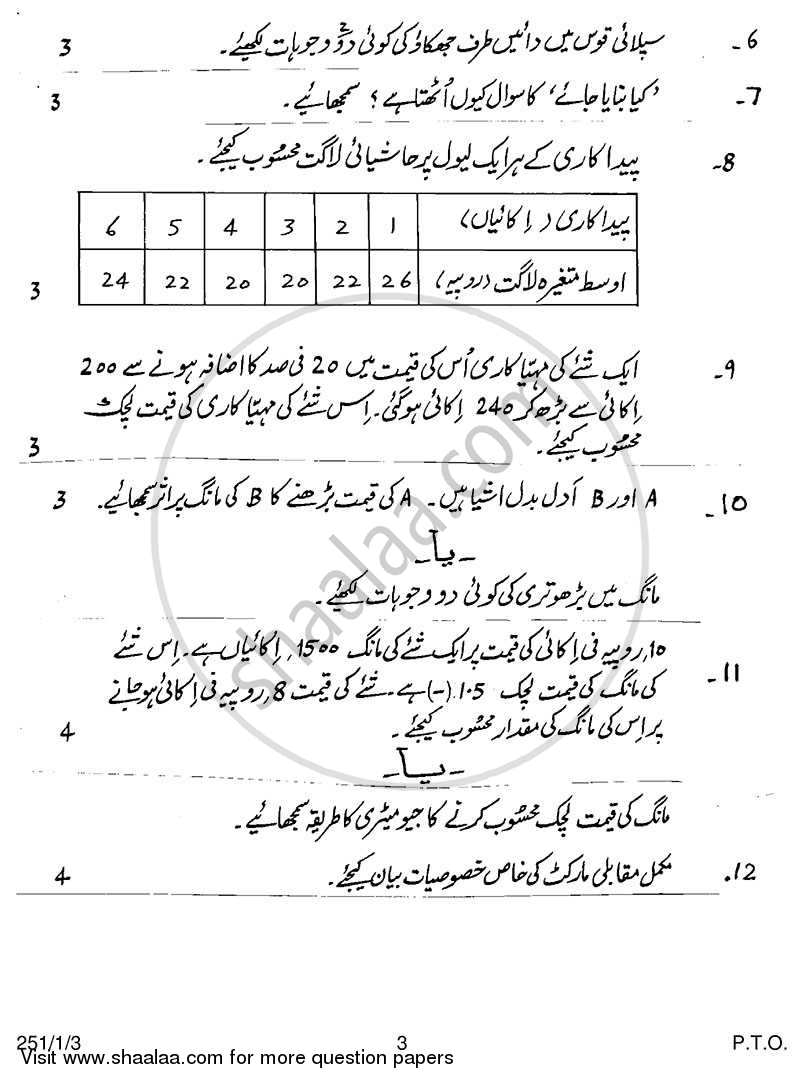 6- سپلائی قوس میں دائیں طرف جھکاؤ کی کوئی دو وجوہات لکھیئے۔ 3
7- ’کیا بنایا جائے‘ کا سوال کیوں اُٹھتا ہے؟ سمجھائیے۔ 3
8- پیداکاری کے ہر ایک لیول پر حاشیائی لاگت محسُوب کیجئے۔
پیداکاری (اِکائیاں) 1 2 3 4 5 6
اوسط متغیرہ لاگت (روپیہ) 26 22 20 20 22 24
3
9- ایک شئے کی مہیّا کاری اُس کی قیمت میں 20 فی صد کا اضافہ ہونے سے 200
اِکائی سے بڑھ کر 240 اِکائی ہوگئی۔ اِس شئے کی مہیّا کاری کی قیمت لچک
محسُوب کیجئے۔ 3
10- A اور B اَدل بدل اشیا ہیں۔ A کی قیمت بڑھنے کا B کی مانگ پر اثر سمجھائیے۔ 3
-یا-
مانگ میں بڑھوتری کی کوئی دو وجوہات لکھئے۔
11- 10, روپیہ فی اِکائی کی قیمت پر ایک شئے کی مانگ 1500, اِکائیاں ہے۔ اِس شئے
کی مانگ کی قیمت لچک 1.5 (-) ہے۔ شئے کی قیمت 8, روپیہ فی اِکائی ہوجانے
پر اِس کی مانگ کی مقدار محسُوب کیجئے۔ 4
-یا-
مانگ کی قیمت لچک محسُوب کرنے کا جیومیٹری کا طریقہ سمجھائیے۔
12. مکمل مقابلی مارکٹ کی خاص خصوصیات بیان کیجئے۔ 4
shaalaa.com
251/1/3 3 P.T.O.
Visit www.shaalaa.com for more question papers